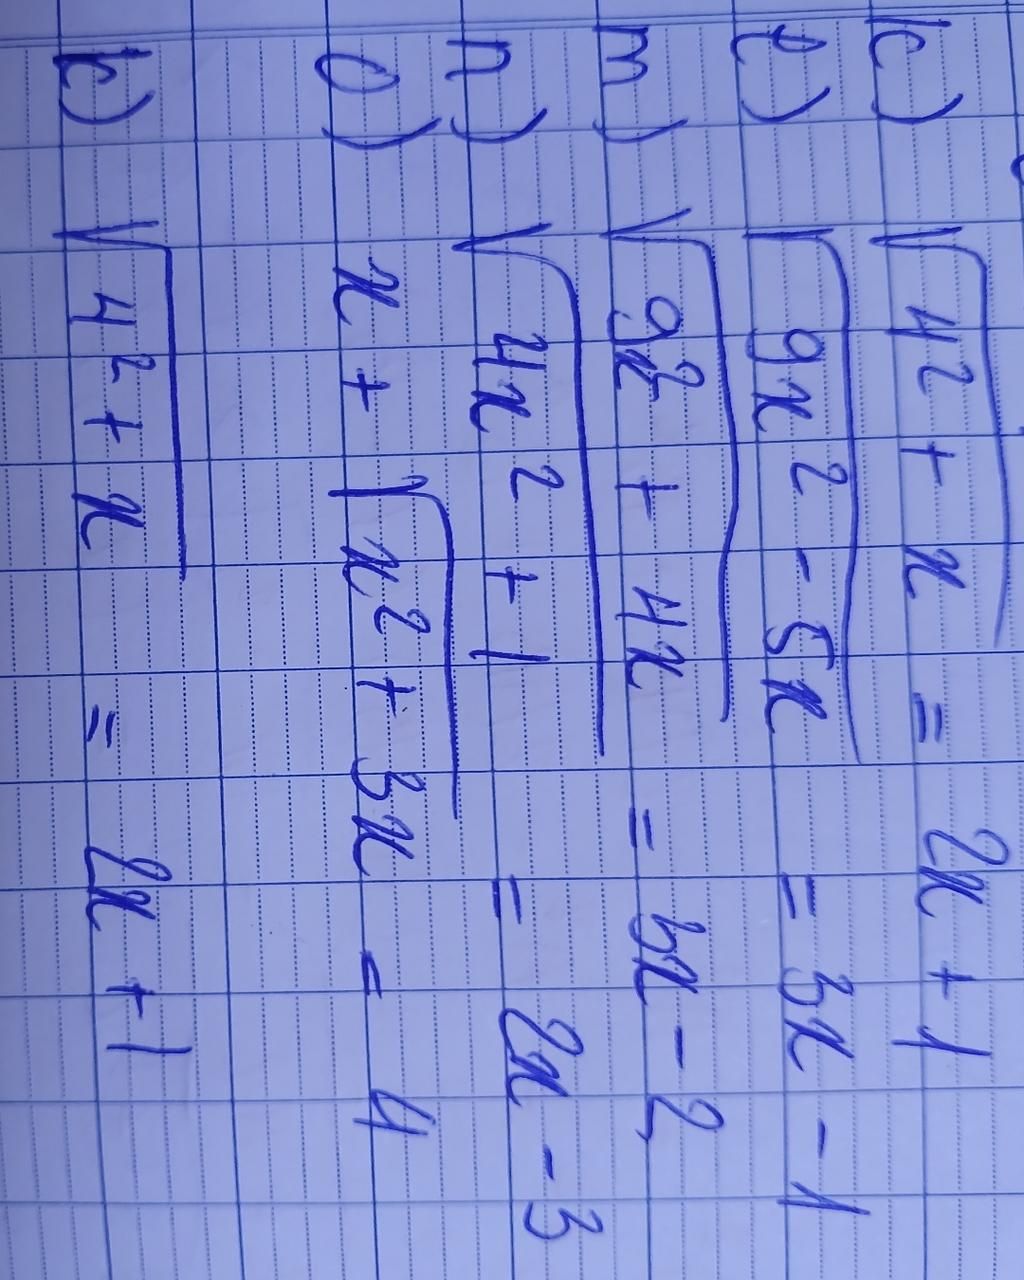 k) √4² + x = 2x + 1
l) √9x² - 5x = 3x - 1
m) √9x² + 4x = 3x - 2
n) √4x² + 1 = 2x - 3
o) x + √x² + 3x = 4
k) √4² + x = 2x + 1